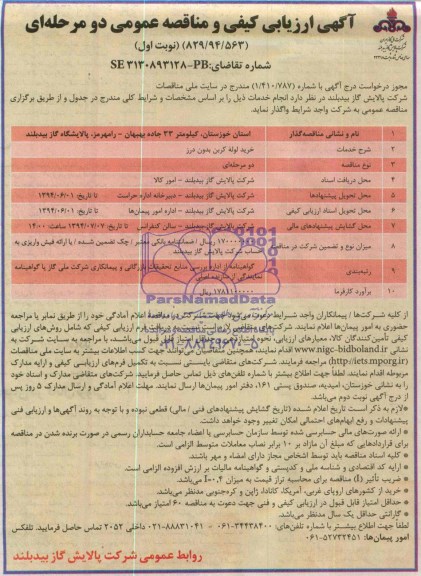 آگهی ارزیابی کیفی و مناقصه عمومی دو مرحله‌ای
(۸۲۹/۹۴/۵۶۳) (نوبت اول)
شماره تقاضای: SE ۳۱۳۰۸۹۳۱۲۸-PB
مجوز درخواست درج آگهی با شماره (۱/۴۱۰/۷۸۷) مندرج در سایت ملی مناقصات
شرکت پالایش گاز بیدبلند در نظر دارد انجام خدمات ذیل را بر اساس مشخصات و شرایط کلی مندرج در جدول و از طریق برگزاری
مناقصه عمومی به شرکت واجد شرایط واگذار نماید.
۱ نام و نشانی مناقصه‌گذار استان خوزستان، کیلومتر ۳۳ جاده بهبهان - رامهرمز، پالایشگاه گاز بیدبلند
۲ شرح خدمات خرید لوله کربن بدون درز
۳ نوع مناقصه دو مرحله‌ای
۴ محل دریافت اسناد شرکت پالایش گاز بیدبلند - امور کالا
۵ محل تحویل پیشنهادها شرکت پالایش گاز بیدبلند - دبیرخانه اداره حراست تا تاریخ: ۱۳۹۴/۰۶/۰۱
۶ محل تحویل استناد ارزیابی کیفی شرکت پالایش گاز بیدبلند - اداره امور پیمان‌ها تا تاریخ: ۱۳۹۴/۰۶/۰۱
۷ محل گشایش پیشنهادهای مالی شرکت پالایش گاز بیدبلند - سالن کنفرانس تا تاریخ: ۱۳۹۴/۰۷/۰۷ ساعت: ۱۴:۰۰
۸ میزان نوع و تضمین شرکت در مناقصه ریال / ضمانت‌نامه بانکی معتبر / چک تضمین شده / یا ارائه فیش واریزی به حساب شرکت پالایش گاز بیدبلند
۹ رتبه‌بندی گواهینامه از اداره بررسی منابع تحقیقات بازرگانی و پیمانکاری شرکت ملی گاز یا گواهینامه نمایندگی از
۱۰ برآورد کارفرما ریال
ParsNamadData
۰۲۱-۸۸۳۴۹۶۷۰-۵
از کلیه شرکت‌ها / پیمانکاران واجد شرایط دعوت می‌شود جهت شرکت در مناقصه اعلام آمادگی خود را از طریق نمابر یا مراجعه
حضوری به امور پیمان‌ها اعلام نمایند. فرم ارزیابی کیفی که شامل روش‌های ارزیابی
کیفی تأمین‌کنندگان کالا، معیارهای ارزیابی، نحوه امتیازدهی و حداقل امتیاز قابل قبول می‌باشند، با مراجعه به سایت شرکت به
نشانی www.nigc-bidboland.ir اقدام نمایند، همچنین متقاضیان می‌توانند جهت کسب اطلاعات بیشتر به سایت ملی مناقصات
(http://iets.mporg.ir) مراجعه فرمایند. شرکت‌های متقاضی بایستی نسبت به تکمیل فرم‌های ارزیابی کیفی و ارایه مدارک
مربوطه اقدام نمایند. لطفاً جهت اطلاع بیشتر با شماره تلفن‌های ذیل تماس حاصل فرمایید. شرکت‌های متقاضی مدارک و اسناد خود
را به نشانی خوزستان، امیدیه، صندوق پستی ۱۶۱، دفتر امور پیمان‌ها ارسال نمایند. مهلت اعلام آمادگی و ارسال مدارک ۵ روز پس
از درج آگهی نوبت دوم می‌باشد.
•لازم به ذکر است تاریخ اعلام شده (تاریخ گشایش پیشنهادهای فنی / مالی) قطعی نبوده و با توجه به روند آگهی‌ها و ارزیابی فنی
پیشنهادات و رفع ابهام‌های احتمالی امکان تغییر وجود خواهد داشت.
• ارائه صورت‌های مالی حسابرسی شده توسط سازمان حسابرسی یا اعضاء جامعه حسابداران رسمی در صورت برنده شدن در مناقصه
برای قراردادهایی که مبلغ آن مازاد بر ۱۰ برابر نصاب معاملات متوسط الزامی است.
• کلیه اسناد مناقصه باید توسط اشخاص مجاز دارای امضاء و مهر باشند.
• ارایه کد اقتصادی و شناسه ملی و کدپستی و گواهینامه مالیات بر ارزش افزوده الزامی است.
• ضریب تأثیر (I) مناقصه برای محاسبه تراز قیمت به میزان ۰.۴=I می‌باشد.
• خرید از کشورهای اروپای غربی، آمریکا، کانادا، ژاپن و کره‌جنوبی مدنظر می‌باشد.
• حداقل امتیاز قابل قبول در ارزیابی کیفی و فنی جهت دعوت به مناقصه ۶۰ امتیاز می‌باشد.
• گارانتی حداقل یک سال مدنظر می‌باشد.
لطفاً جهت اطلاع بیشتر با شماره تلفن‌های: ۳۴۴۳۸۴۰۰-۰۶۱ - ۸۸۸۳۱۰۴۱-۰۲۱ داخلی ۲۰۵۲ تماس حاصل فرمایید. تلفکس
امور پیمان‌ها: ۵۲۷۳۲۴۵۱-۰۶۱
روابط عمومی شرکت پالایش گاز بیدبلند